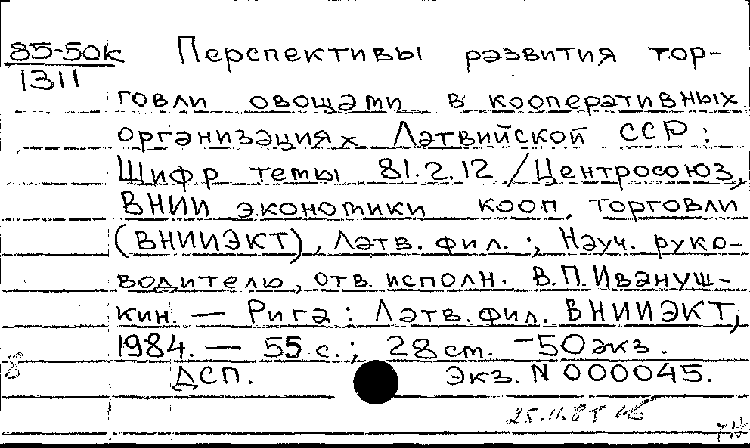 85-50к Перспективы развития тор-
1311
говли овощами в кооперативных
организациях Латвийской ССР:
Шифр темы 81.2.12 / Центросоюз,
ВНИИ экономики кооп. торговли
(ВНИИЭКТ), Латв. фил.; Науч. руко-
водитель, отв. исполн. В.П. Ивануш-
кин. — Рига: Латв. фил. ВНИИЭКТ,
1984. — 55 с.; 28 см. — 50 экз.
ДСП. Экз. N 000045.